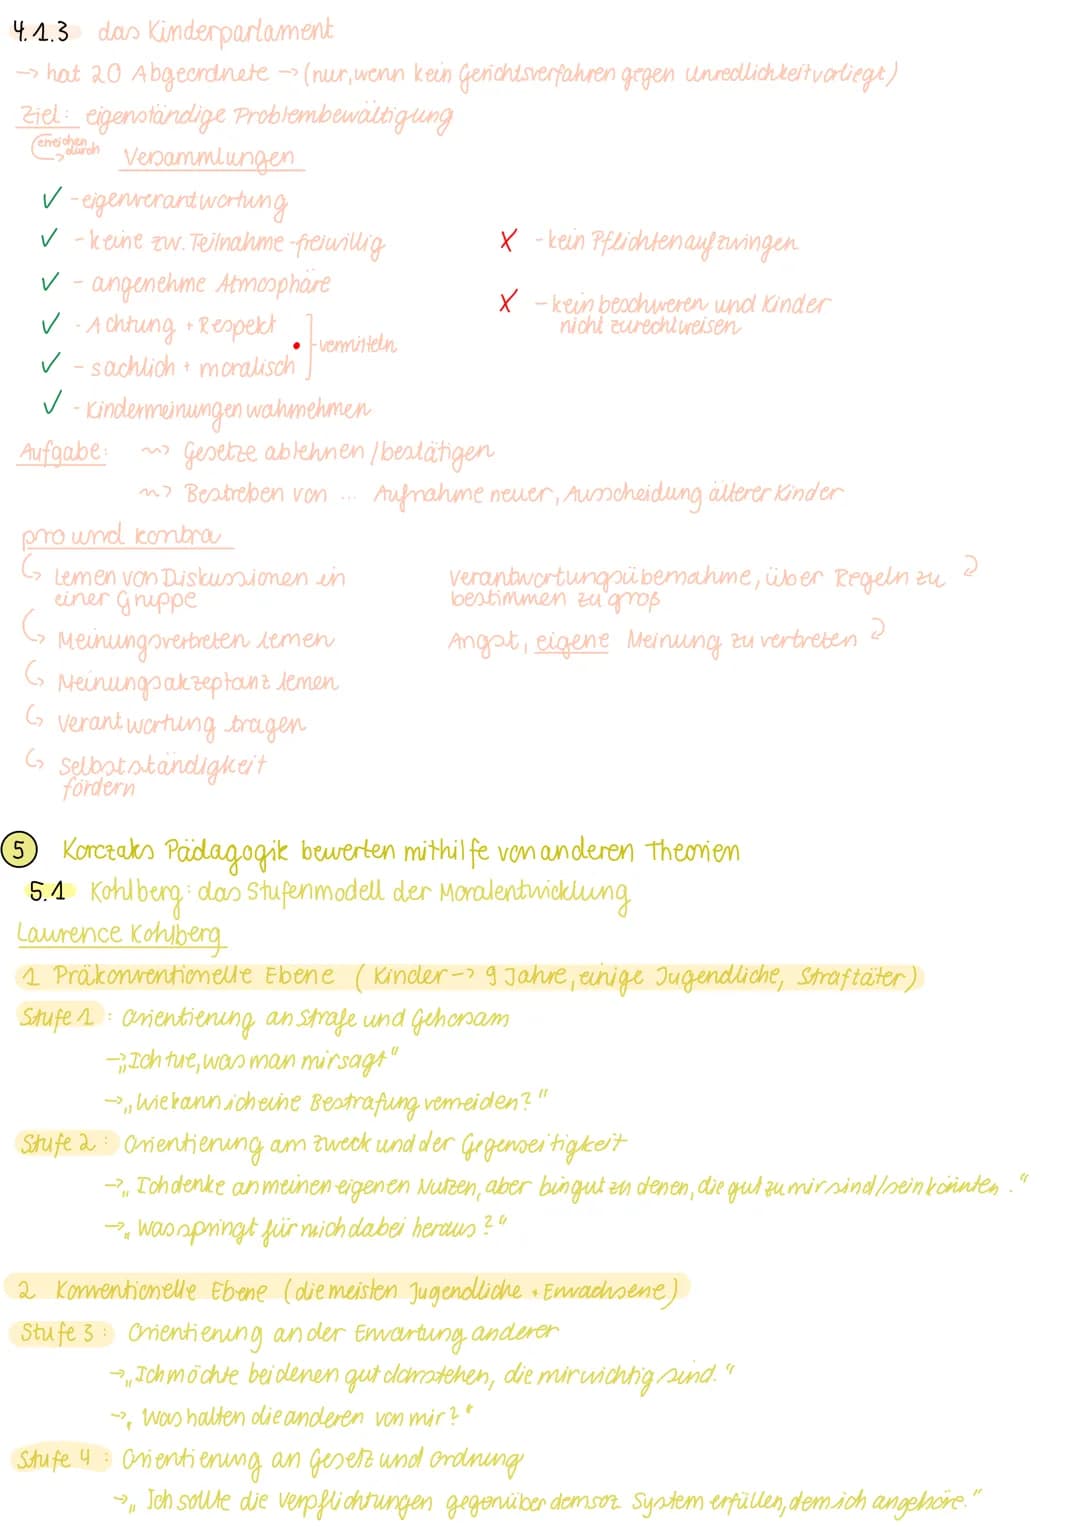 4.1.3 das Kinderparlament
→ hat 20 Abgeordnete → (nur, wenn kein Gerichtsverfahren gegen Unredlichkeit vorliegt)
Ziel: eigenständige Problembewältigung
erreichen durch
Versammlungen
✓ - eigenverantwortung
✓ - keine zw. Teilnahme - freiwillig
X - kein Pflichten aufzwingen
✓ - angenehme Atmosphäre
X - kein beschweren und Kinder
nicht zurechtweisen
✓ - Achtung + Respekt
vermitteln
✓ - sachlich + moralisch
✓ - Kindermeinungen wahrnehmen
Aufgabe: ~> Gesetze ablehnen / bestätigen
~> Bestreben von ... Aufnahme neuer, Ausscheidung älterer Kinder
pro und kontra
Lernen von Diskussionen in
einer Gruppe
Verantwortungsübernahme, über Regeln zu
bestimmen zu groß
Meinungsvertreten lernen
Angst, eigene Meinung zu vertreten
Meinungsakzeptanz lernen
Verantwortung tragen
Selbstständigkeit
fördern
5 Korczaks Pädagogik bewerten mithilfe von anderen Theorien
5.1 Kohlberg: das Stufenmodell der Moralentwicklung
Lawrence Kohlberg
1 Präkonventionelle Ebene (Kinder → 9 Jahre, einige Jugendliche, Straftäter)
Stufe 1: Orientierung an Strafe und Gehorsam
→ „Ich tue, was man mir sagt"
→ „Wie kann ich eine Bestrafung vermeiden?"
Stufe 2: Orientierung am Zweck und der Gegenseitigkeit
→ „Ich denke an meinen eigenen Nutzen, aber bin gut zu denen, die gut zu mir sind / sein könnten."
→ „Was springt für mich dabei heraus?"
2 Konventionelle Ebene (die meisten Jugendliche + Erwachsene)
Stufe 3: Orientierung an der Erwartung anderer
→ „Ich möchte bei denen gut darstehen, die mir wichtig sind."
→ „Was halten die anderen von mir?"
Stufe 4: Orientierung an Gesetz und Ordnung
→ „Ich sollte die Verpflichtungen gegenüber dem soz System erfüllen, dem ich angehöre."